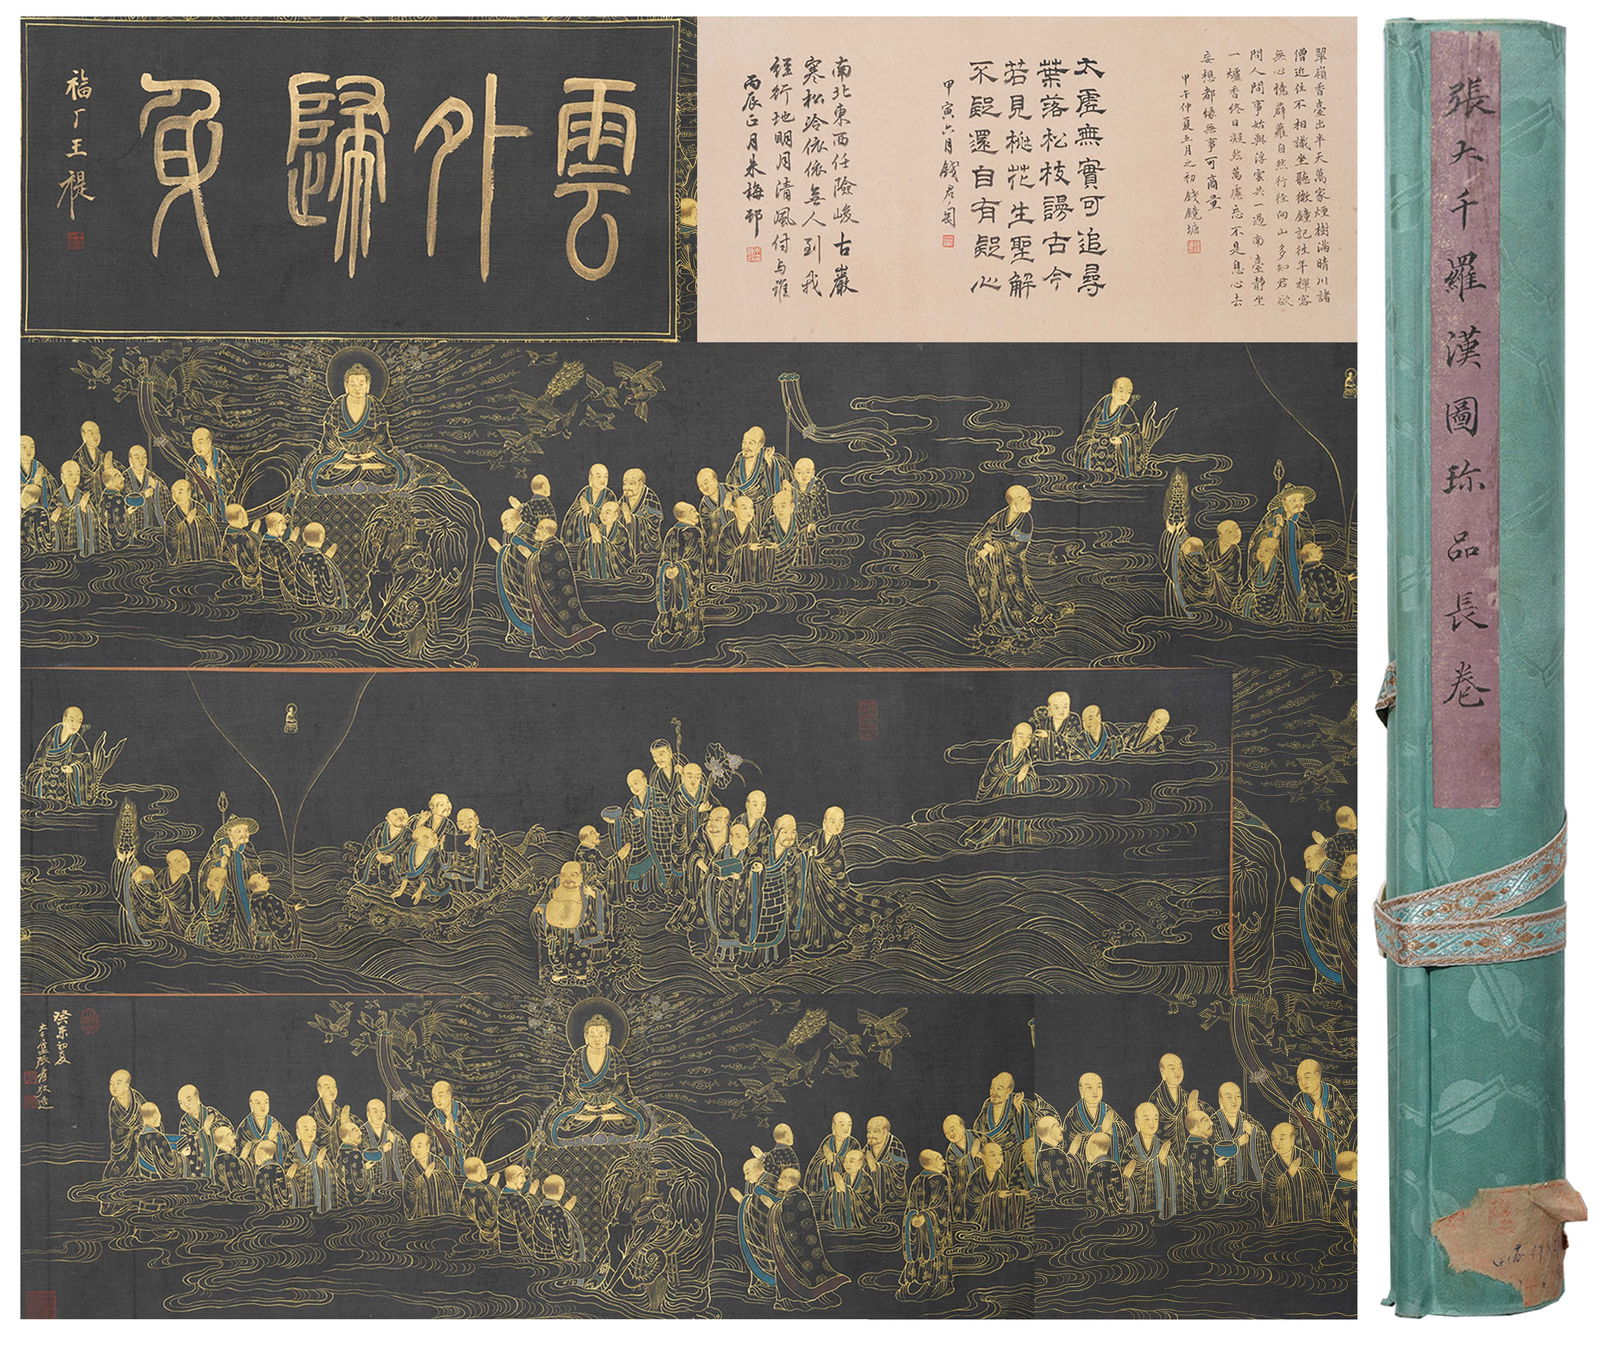 雲外歸真
福厂王禔
翠嶺香臺出半天萬家煙樹滿晴川諸
僧近住不相識坐聽微鐘記往年禪客
無心憶薜蘿自然行徑向山多知君欲
問人間事始與浮雲共一過南臺靜坐
一爐香終日凝然萬慮忘不是息心去
妄想都緣無事可商量
甲午仲夏五月之初 錢鏡塘
太虛無實可追尋
葉落松枝謾古今
若見桃花生聖解
不疑還自有疑心
甲寅六月錢君匋
南北東西任險巇古巖
寒松冷依依無人到我
經行地明月清風付與誰
丙辰正月朱梅邨
癸未初夏
大千張爰敬造
張大千羅漢圖珍品長卷